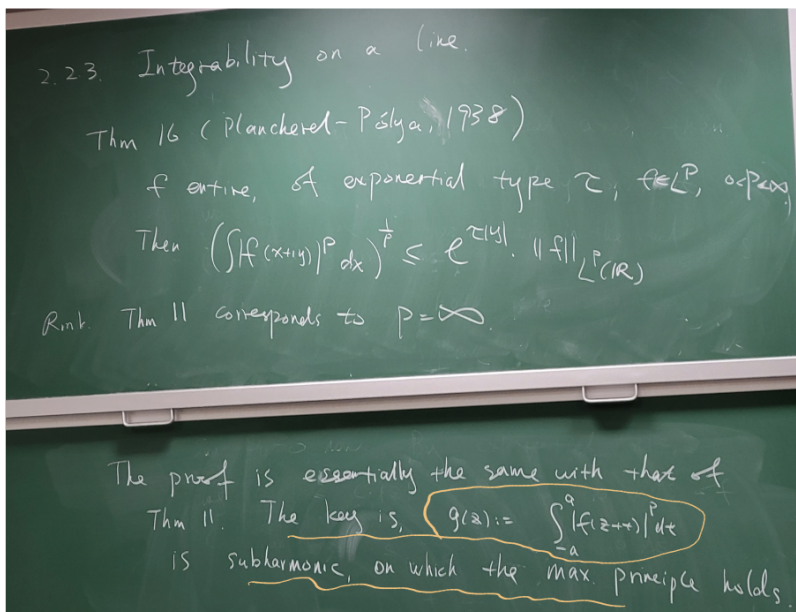 2.23. Integrability on a line.
Thm 16 (Plancherel-Pólya, 1938)
f entire, of exponential type τ, f∈L^P, 0<P<∞,
Then (∫|f(x+iy)|^P dx)^{1/P} ≤ e^{τ|y|}. ||f||_{L^P(IR)}
Rmk. Thm 11 corresponds to P=∞
The proof is essentially the same with that of
Thm 11. The key is, g(z):= ∫_{-a}^{a}|f(z+t)|^P dt
is subharmonic, on which the max. principle holds.